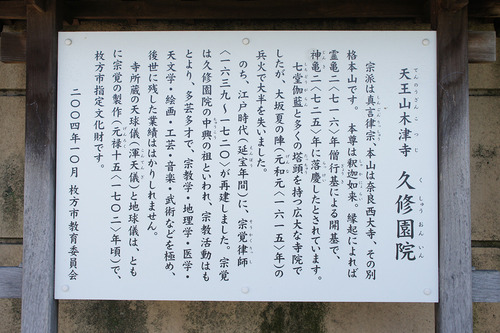 天王山木津寺 久修園院
てんのうざん こつじ
しょうおんいん
宗派は真言律宗、本山は奈良西大寺、その別
格本山です。 本尊は釈迦如来。縁起によれば
霊亀二〈七一六〉年僧行基による開基で、
神亀二〈七二五〉年に落慶したとされています。
七堂伽藍と多くの塔頭を持つ広大な寺院で
したが、大坂夏の陣〈元和元〈一六一五〉年〉の
兵火で大半を失いました。
のち、江戸時代〈延宝年間〉に、宗覚律師
〈一六三九〜一七二〇〉が再建しました。宗覚
は久修園院の中興の祖といわれ、宗教活動はも
とより、多芸多才で、宗教学・地理学・医学・
天文学・絵画・工芸・音楽・武術などを極め、
後世に残した業績ははかりしれません。
寺所蔵の天球儀〈渾天儀〉と地球儀は、とも
に宗覚の製作〈元禄十五〈一七〇二〉年頃〉で、
枚方市指定文化財です。
二〇〇四年一〇月 枚方市教育委員会